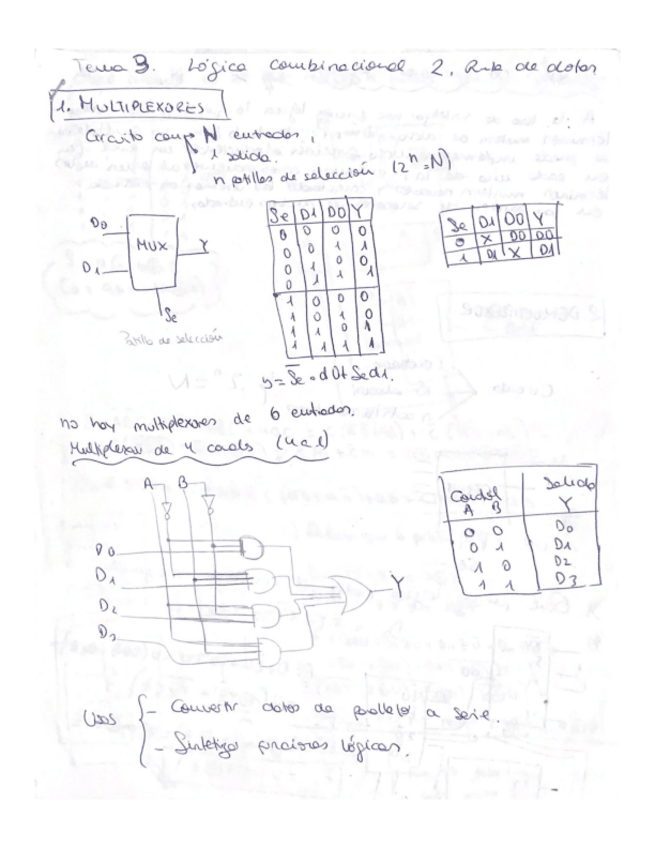 Tema 3. Lógica combinacional 2. Ruta de datos
1. MULTIPLEXORES
Circuito con N entradas,
1 salida.
n patillas de selección (2ⁿ=N)
D0
D1
MUX
Y
Se
Patilla de selección
Se D1 D0 Y
0 0 0 0
0 0 1 1
0 1 0 0
0 1 1 1
1 0 0 0
1 0 1 0
1 1 0 1
1 1 1 1
Se D1 D0 Y
0 X D0 D0
1 D1 X D1
y = S̅e·d0+Sed1.
no hay multiplexores de 6 entradas.
Multiplexor de 4 canales (4 a 1)
A B
D0
D1
D2
D3
Y
Control Salida
A B Y
0 0 D0
0 1 D1
1 0 D2
1 1 D3
Usos
- Convertir datos de paralelo a serie.
- Sintetizar funciones lógicas.